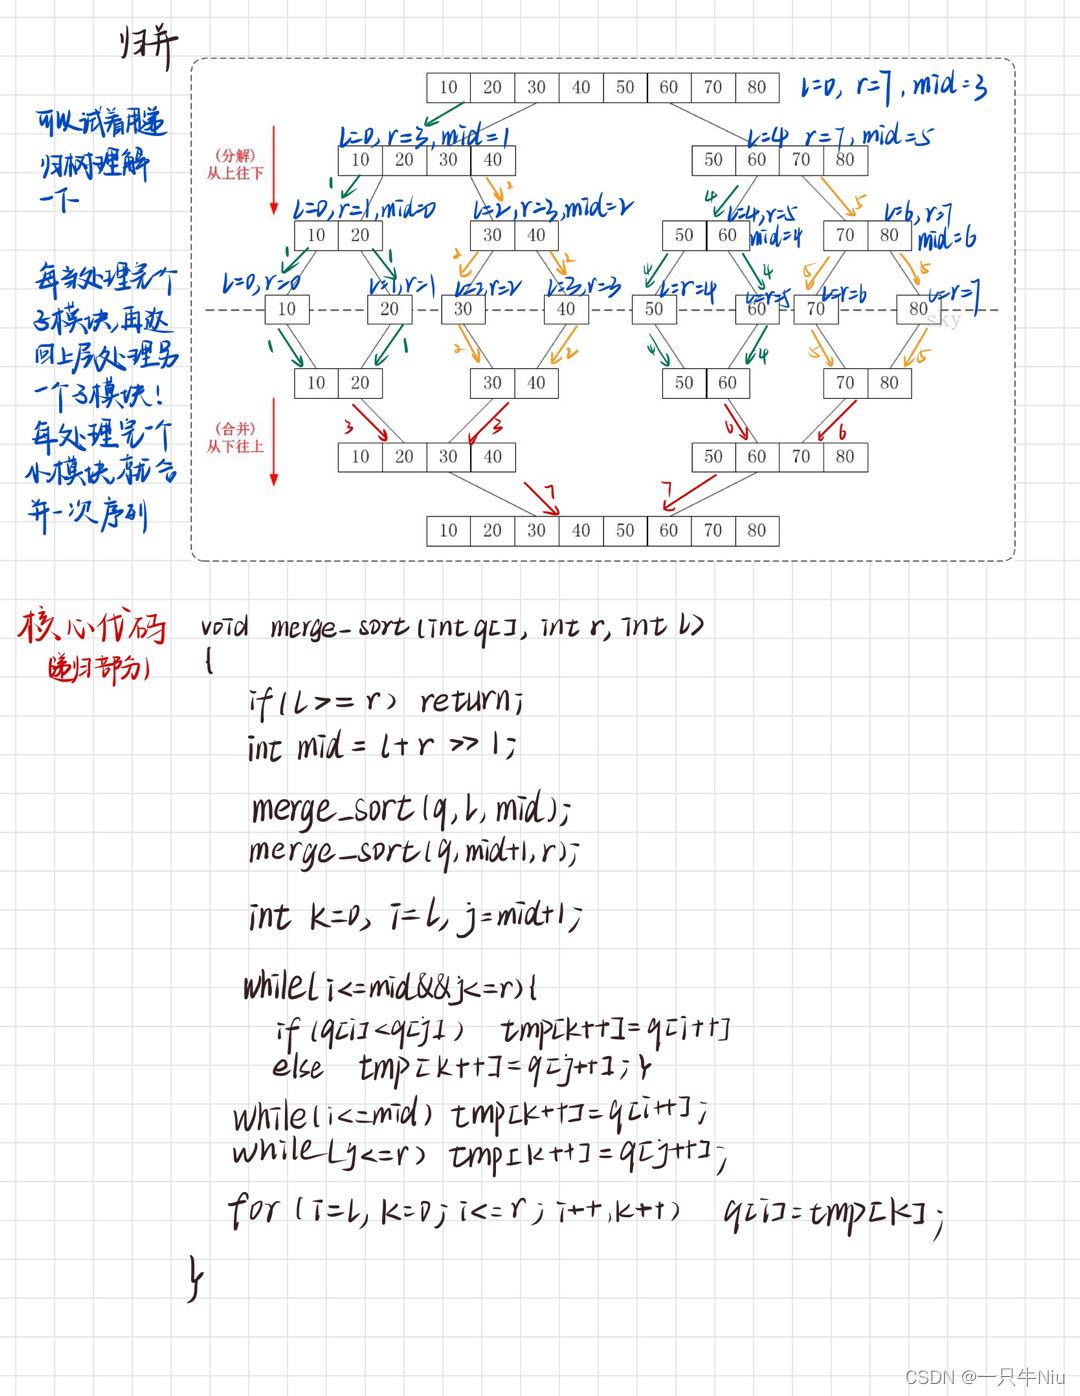 归并
10 20 30 40 50 60 70 80 l=0, r=7, mid=3
可以试着用递
归树理解
一下
(分解)
从上往下
l=0, r=3, mid=1
l=4 r=7, mid=5
10 20 30 40
50 60 70 80
1 2 4 5
l=0, r=1, mid=0
l=2, r=3, mid=2
l=4, r=5
mid=4
l=6, r=7
mid=6
10 20
30 40
50 60
70 80
1 1 2 2 4 4 5 5
每次处理完一个
子模块,再返
回上层处理另
一个子模块!
每处理完一个
小模块就合
并一次序列
l=0, r=0
l=1, r=1
l=2, r=2
l=3, r=3
l=r=4
l=r=5
l=r=6
l=r=7
10 20 30 40 50 60 70 80
sky
1 1 2 2 4 4 5 5
10 20
30 40
50 60
70 80
(合并)
从下往上
3 3 6 6
10 20 30 40
50 60 70 80
7 7
10 20 30 40 50 60 70 80
核心代码
(递归部分)
void merge_sort(int q[], int r, int l)
{
if(l>=r) return;
int mid = l+r >> 1;
merge_sort(q, l, mid);
merge_sort(q, mid+1, r);
int k=0, i=l, j=mid+1;
while(i<=mid&&j<=r){
if(q[i]<q[j]) tmp[k++]=q[i++]
else tmp[k++]=q[j++];}
while(i<=mid) tmp[k++]=q[i++];
while(j<=r) tmp[k++]=q[j++];
for(i=l, k=0; i<=r; i++,k++) q[i]=tmp[k];
}
CSDN @一只牛Niu